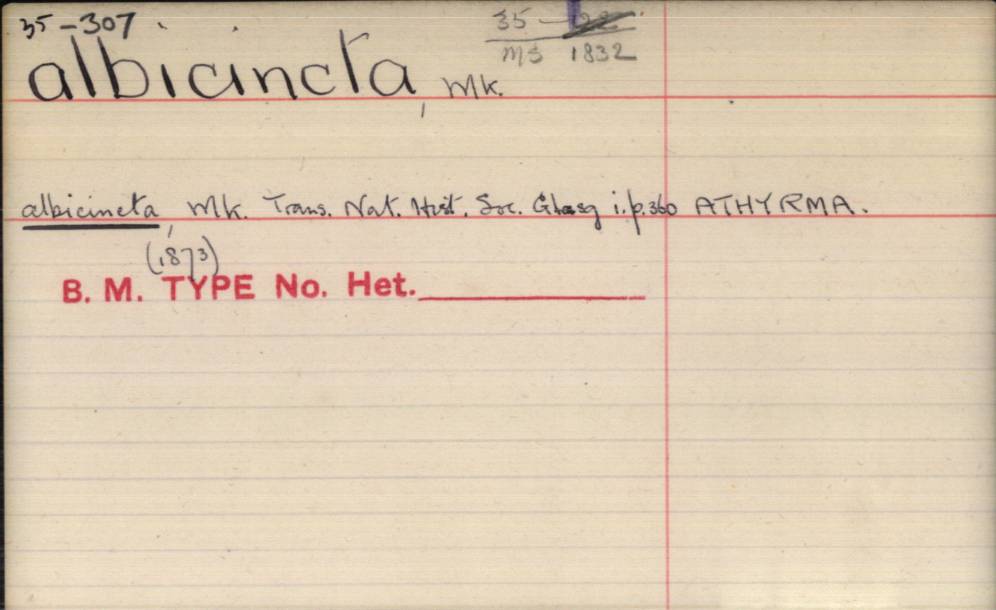 35-307
35 -
MS 1832
albicincta, Mk.
albicincta, Mk. Trans. Nat. Hist. Soc. Glasg i. p. 360 ATHYRMA.
(1873)
B. M. TYPE No. Het.